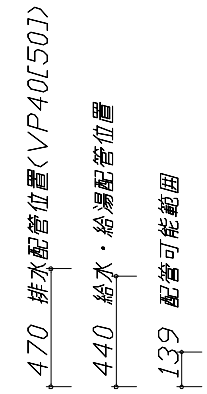 470 排水配管位置<VP40[50]>
440 給水・給湯配管位置
139 配管可能範囲